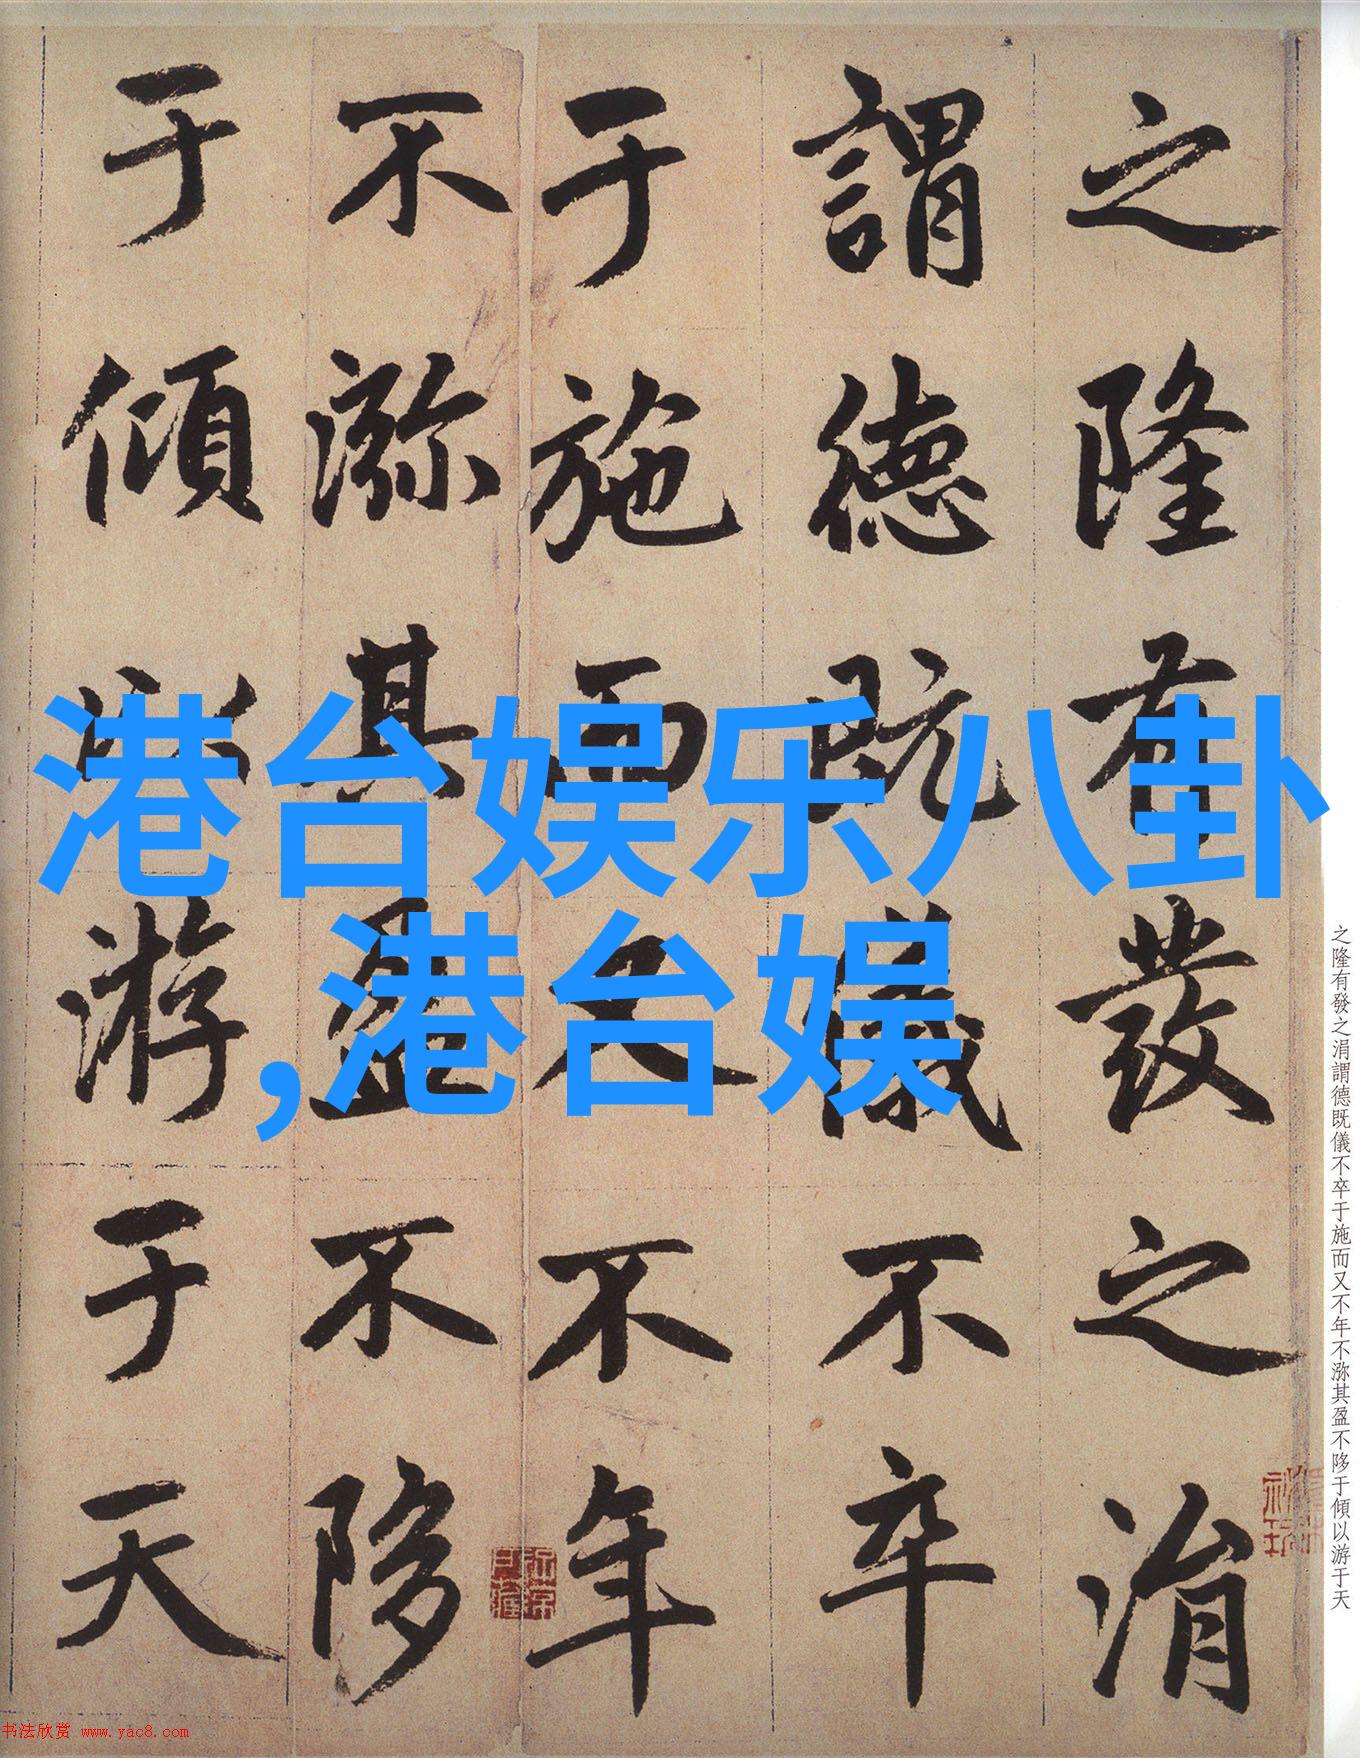 港台娱乐八卦
,港台娱
之隆有發之涓
謂德既儀不卒
于施而又不年
不㳽其盈不陊
于傾以游于天
之隆有發之涓謂德既儀不卒于施而又不年不㳽其盈不陊于傾以游于天
书法欣赏 www.yac8.com